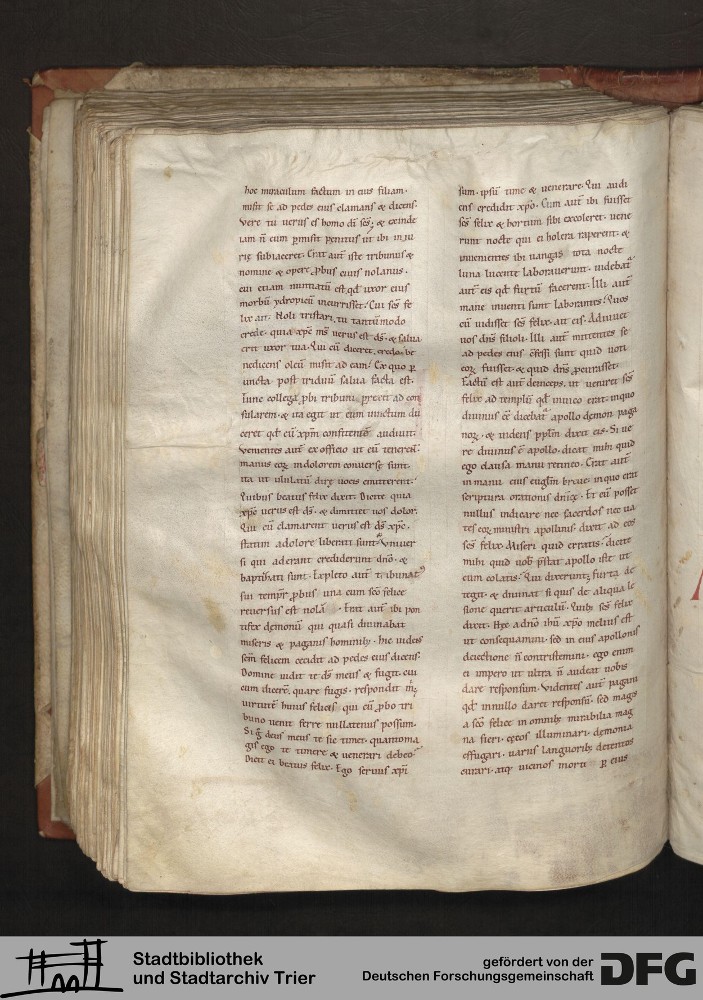 hoc miraculum factum in eius filiam.
misit se ad pedes eius clamans & dicens.
Vere tu uerus es homo dī scs; & exinde
iam n̄ eum ꝑmisit penitus ut ibi iniu
rię subiaceret. Erat aut̄ iste tribunus &
nomine & opere ꝓbus ciuis nolanus.
cui etiam nuntiatū est qd̄ uxor eius
morbū ydropicū incurrisset. Cui scs fe
lix ait. Noli tristari. tu tantūmodo
crede. quia xp̄c ms̄ uerus est ds̄. & salua
erit uxor tua. Qui cū diceret, credo. be
nedicens oleū misit ad eam. Ex quo ꝑ
uncta post triduū salua facta est.
Tunc collega ꝓbi tribuni ꝑrexit ad con
sularem. & ita egit ut eum uinctum du
ceret qd̄ eū xp̄m confitentē audiuit.
Venientes aut̄ ex officio ut eū tenerent.
manus eoꝝ in dolorem conuersę sunt.
ita ut ululatū dirę uoces emitterent.
Quibus beatus felix dixit. Dicite quia
xp̄c uerus est ds̄. & dimittet uos dolor.
Qui cū clamarent uerus est ds̄ xp̄c.
statim a dolore liberati sunt. Vniuer
si qui aderant crediderunt dnō. &
baptizati sunt. Expleto aut̄ tribunatꝰ
sui tempr̄ ꝓbus una cum scō felice
reuersus est nolā. Erat aut̄ ibi pon
tifex demonū qui quasi diuinabat
miseris & paganis hominibꝫ. hic uidens
scm̄ felicem cecidit ad pedes eius dicens.
Domine uidit te ds̄ meus & fugit. cui
cum dicer&. quare fugis. respondit m̄.
uirtutē huius felicis qui cū ꝓbo tri
buno uenit ferre nullatenus possum.
Si g̊ deus meus te sic timet. quantoma
gis ego te timere & uenerari debeo.
Dicit ei beatus felix. Ego seruus xp̄i
sum. ipsū time & uenerare. Qui audi
ens credidit xp̄o. Cum aut̄ ibi fuisset
scs̄ felix & hortum sibi excoleret. uene
runt nocte qui ei holera raperent. &
inuenientes ibi uangas tota nocte
luna lucente laborauerunt. uidebat᷑
aut̄ eis qd̄ furtū facerent. Illi aut̄
mane inuenti sunt laborantes. Quos
cū uidisset scs̄ felix. ait eis. Adiuuet
uos dn̄s filioli. Illi aut̄ mittentes se
ad pedes eius cōfessi sunt quid uoti
eoꝝ fuisset. & quid dn̄s ꝑpetrasset.
Factū est aut̄ deinceps. ut ueniret scs̄
felix ad templū qd̄ inuico erat. inquo
diuinus eē dicebat᷑ apollo demon paga
noꝝ. & uidens pplm̄ dixit eis. Si ue
re diuinus ē apollo. dicat mihi quid
ego clausa manu retineo. Erat aut̄
in manu eius euglm̄ breue. inquo erat
scriptura orationis dnicę. Et cū posset
nullus indicare nec sacerdos nec ua
tes eoꝝ ministri apollinis. dixit ad eos
scs̄ felix. Miseri quid erratis. dicite
mihi quid uobꝫ pr̄stat apollo iste ut
eum colatis. Qui dixerunt. furta de
tegit. & diuinat si quis de aliqua le
sione querit articulū. Quibꝫ scs̄ felix
dixit. Hęc a dnō ihū xp̄o melius est
ut consequamini. sed in eius apollonis
deiectione n̄ contristemini. ego enim
ei impero ut ultra n̄ audeat uobis
dare responsum. Videntes aut̄ pagani
qd̄ innullo daret responsū. sed magis
a scō felice in omnibꝫ mirabilia mag
na fieri. cęcos illuminari. demonia
effugari. uariis languoribꝫ detentos
curari. atqꝫ uicinos morti ꝑ eius
Stadtbibliothek
und Stadtarchiv Trier
gefördert von der
Deutschen Forschungsgemeinschaft
DFG